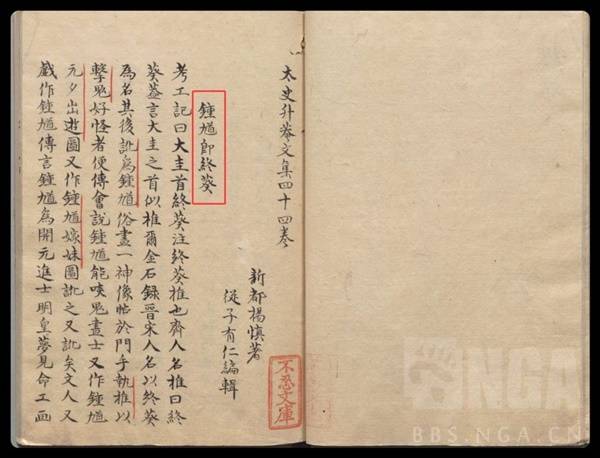 太史升菴文集四十四卷
新都楊慎著
從子有仁編輯
鍾馗即終葵
考工記曰大圭首終葵注終葵椎也齊人名椎曰終
葵蓋言大圭之首似椎爾金石錄晉宋人名以終葵
為名其後訛為鍾馗俗畫一神像帖於門手執椎以
擊鬼好怪者便傅會說鍾馗能啖鬼畫士又作鍾馗
元夕出遊圖又作鍾馗嫁妹圖訛之又訛矣文人又
戲作鍾馗傳言鍾馗為開元進士明皇夢見命工画
不忍文庫
NGA
BBS.NGA.CN